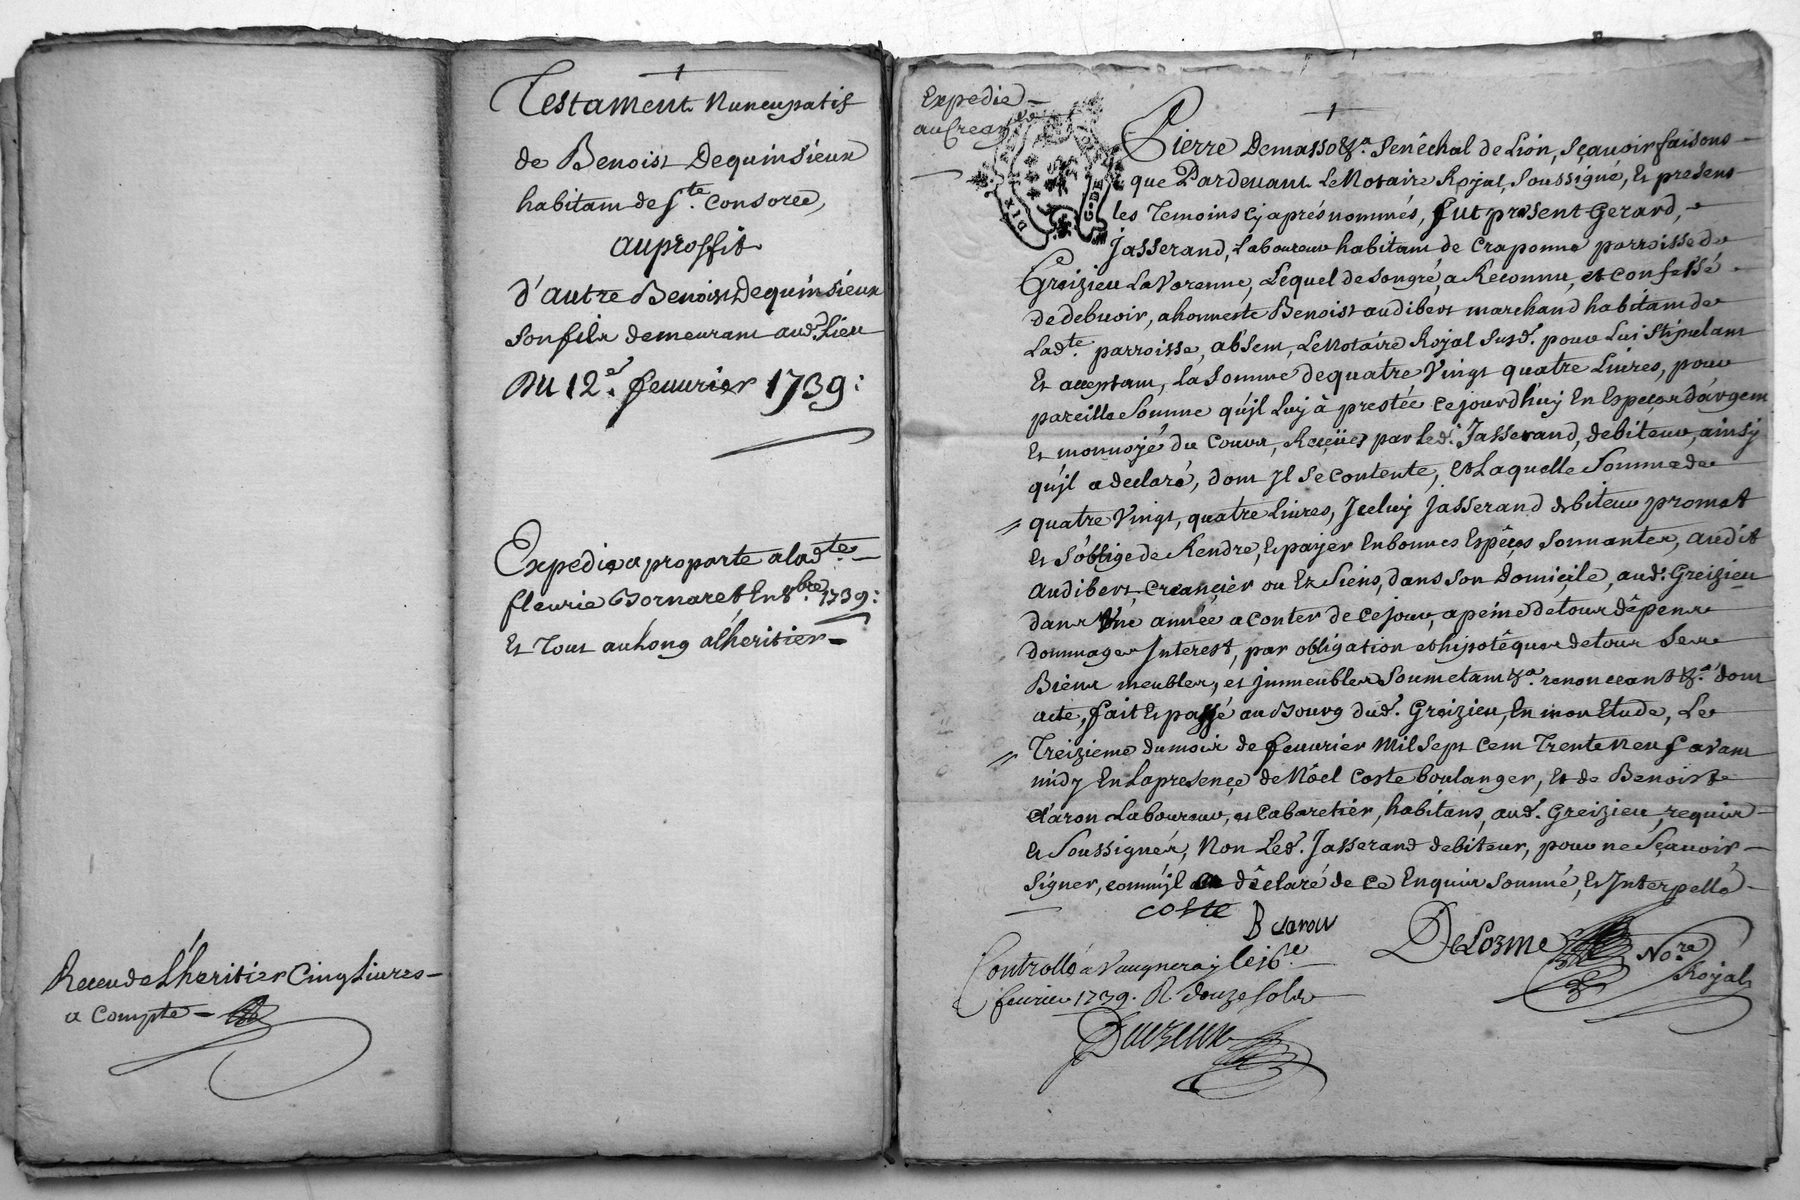 Receu de l'heritier Cinq Livres
a Compte
Testament Nuncupatif
de Benoist Dequinsieux
habitant de Ste. Consorce,
au proffit
d'autre Benoist Dequinsieux
son fils demeurant aud. Lieu
Du 12e. feuurier 1739:
Expedié a proporte a lad.te
fleurie Bornaret En 8bre. 1739:
Et Tout au Long a l'heritier
Expedié
au Crean.er
DIX
G. DE
Pierre Demasso &a. Senêchal de Lion, Sçauoir faisons
que Pardeuant Le Notaire Royal, Soussigné, Et present
les Temoins cy aprés nommés, fut present Gerard,
Jasserand, Laboureur habitant de Craponne parroisse de
Greizieu La Varenne, Lequel de son gré, a Reconnu, et confessé
de debuoir, a honneste Benoist audibert marchand habitant de
Lad.te parroisse, absent, Le Notaire Royal Susd. pour Lui Stipulant
Et acceptant, La Somme de quatre Vingt quatre Livres, pour
pareille Somme qu'jl Luy à prestée cejourdhuy En Especes d'argent
Et monnoye du Cours, Reçües par Led. Jasserand, debiteur, ainsy
qu'jl a declaré, dont jl Se Contente, Et Laquelle Somme de
quatre Vingt, quatre Liures, Jceluy Jasserand debiteur promet
Et S'oblige de Rendre, Et payer En bonnes Espêces Sonnantes, audit
Audibert, Creançier ou Es Siens, dans Son Domiçile, aud. Greizieu
dans Vne année a conter de ce jour, a peine de tous dêpens
dommages Interest, par obligation et hipotêques de tous Ses
Biens meubles, et jmmeubles Soumetant &a. renonceant &a. dont
acte, fait Et passé au Bourg dud. Greizieu, En mon Etude, Le
Treizieme du mois de feuurier Mil Sept Cent Trente neuf avant
midy En La presençe de Nöel Coste boulanger, Et de Benoist
Claron Laboureur, et Cabaretier, habitans, aud. Greizieu requis
Et Soussignés, Non Led. Jasserand debiteur, pour ne Sçauoir
Signer, comm'jl a dêclaré de ce Enquis Sommé, Et Interpellé
Coste
B Claron
DeLorme No.re
Royal
Controllé a Vaugneray le 16e.
feurier 1739. R. douze Sols